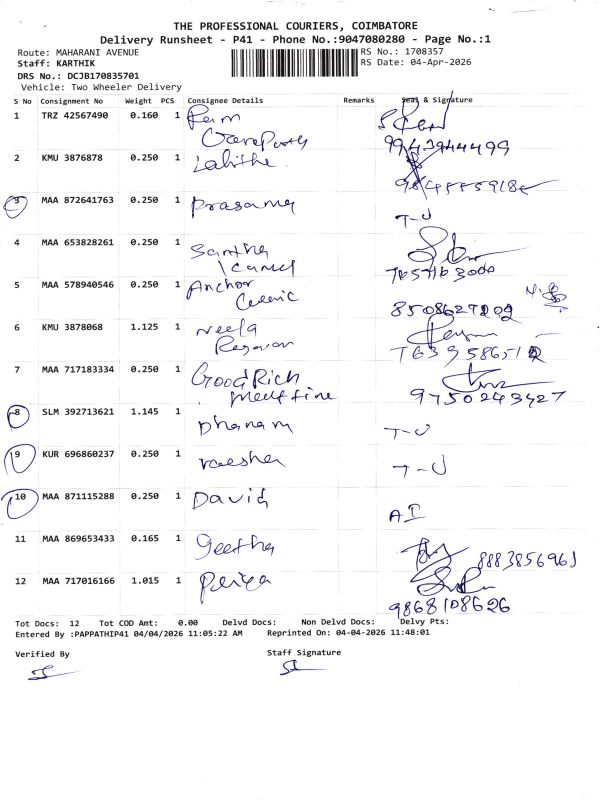 THE PROFESSIONAL COURIERS, COIMBATORE
Delivery Runsheet - P41 - Phone No.:9047080280 - Page No.:1
Route: MAHARANI AVENUE
RS No.: 1708357
Staff: KARTHIK
RS Date: 04-Apr-2026
DRS No.: DCJB170835701
Vehicle: Two Wheeler Delivery
S No Consignment No Weight PCS Consignee Details Remarks Seal & Signature
1 TRZ 42567490 0.160 1 Ram
9943944499
2 KMU 3876878 0.250 1 Lalitha
3 MAA 872641763 0.250 1 Prasanna
T-U
4 MAA 653828261 0.250 1 Santha
5 MAA 578940546 0.250 1 Anchor
8508627202
6 KMU 3878068 1.125 1 Neela
7 MAA 717183334 0.250 1 GoodRich
9750243427
8 SLM 392713621 1.145 1 Dhanam
T-U
9 KUR 696860237 0.250 1
T-U
10 MAA 871115288 0.250 1 David
AI
11 MAA 869653433 0.165 1 Geetha
8883856961
12 MAA 717016166 1.015 1 Periya
9868108626
Tot Docs: 12 Tot COD Amt: 0.00 Delvd Docs: Non Delvd Docs: Delvy Pts:
Entered By :PAPPATHIP41 04/04/2026 11:05:22 AM Reprinted On: 04-04-2026 11:48:01
Verified By Staff Signature